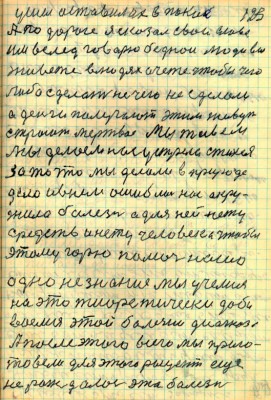 ушли оставили их в покое 125
А по дороге я сказал свои слова
им вслед говорю бедном люди вы
живете в людях хочете чтобы чего
либо сделать ничего не сделали
а деньги получают этим живут
строют мертвое Мы такого
Мы делаем
за то что мы делали в природе
дело в нем ошибли нас окру
жила болезн а для ней нету
средств и нету человека чтобы
этому горю помоч нашо
одно незнание мы учения
на это тиоретически доби
ваемся этой болезни диагноз
А после этого всего мы приго
товели для этого рецепт еще
не раж далос эта болезн